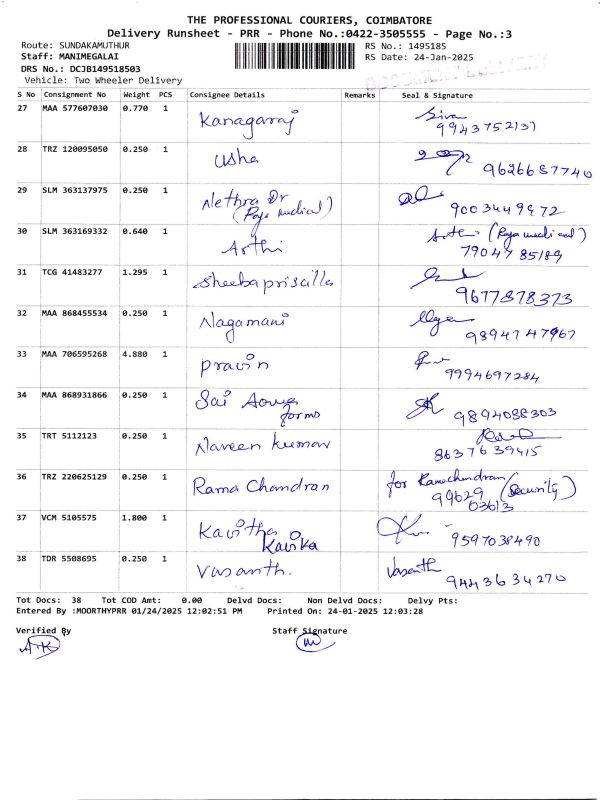 THE PROFESSIONAL COURIERS, COIMBATORE
Delivery Runsheet - PRR - Phone No.:0422-3505555 - Page No.:3
Route: SUNDAKAMUTHUR
RS No.: 1495185
Staff: MANIMEGALAI
RS Date: 24-Jan-2025
DRS No.: DCJB149518503
Vehicle: Two Wheeler Delivery
S No Consignment No Weight PCS Consignee Details Remarks Seal & Signature
27 MAA 577607030 0.770 1 Kanagaraj Siva
9943752137
28 TRZ 120095050 0.250 1 Usha
9626687740
29 SLM 363137975 0.250 1 Nethra Dr
(Raja medical) 9003449972
30 SLM 363169332 0.640 1 Arthi Arthi (Raja medical)
7904785189
31 TCG 41483277 1.295 1 Sheebapriscilla
9677878373
32 MAA 868455534 0.250 1 Nagamani
9894747967
33 MAA 706595268 4.880 1 pravin
9994697284
34 MAA 868931866 0.250 1 Sai
forms 9894088303
35 TRT 5112123 0.250 1 Naveen kumar
8637639415
36 TRZ 220625129 0.250 1 Rama Chandran for Ramachandran
(Security)
99629
03613
37 VCM 5105575 1.800 1 Kavitha
Kavika 9597038490
38 TDR 5508695 0.250 1 Vasanth. Vasanth
9443634270
Tot Docs: 38 Tot COD Amt: 0.00 Delvd Docs: Non Delvd Docs: Delvy Pts:
Entered By :MOORTHYPRR 01/24/2025 12:02:51 PM Printed On: 24-01-2025 12:03:28
Verified By Staff Signature